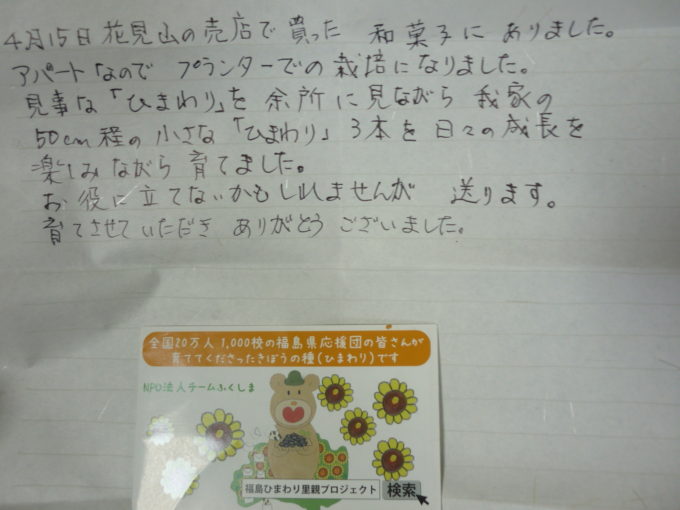 4月15日 花見山の売店で 買った 和菓子に ありました。
アパートなので プランターでの 栽培になりました。
見事な「ひまわり」を 余所に 見ながら 我家の
50cm程の 小さな「ひまわり」3本を 日々の成長を
楽しみながら 育てました。
お役に立てないかもしれませんが 送ります。
育てさせていただき ありがとう ございました。
全国20万人 1,000校の福島県応援団の皆さんが
育ててくださったきぼうの種(ひまわり)です
NPO法人チームふくしま
福島ひまわり里親プロジェクト 検索